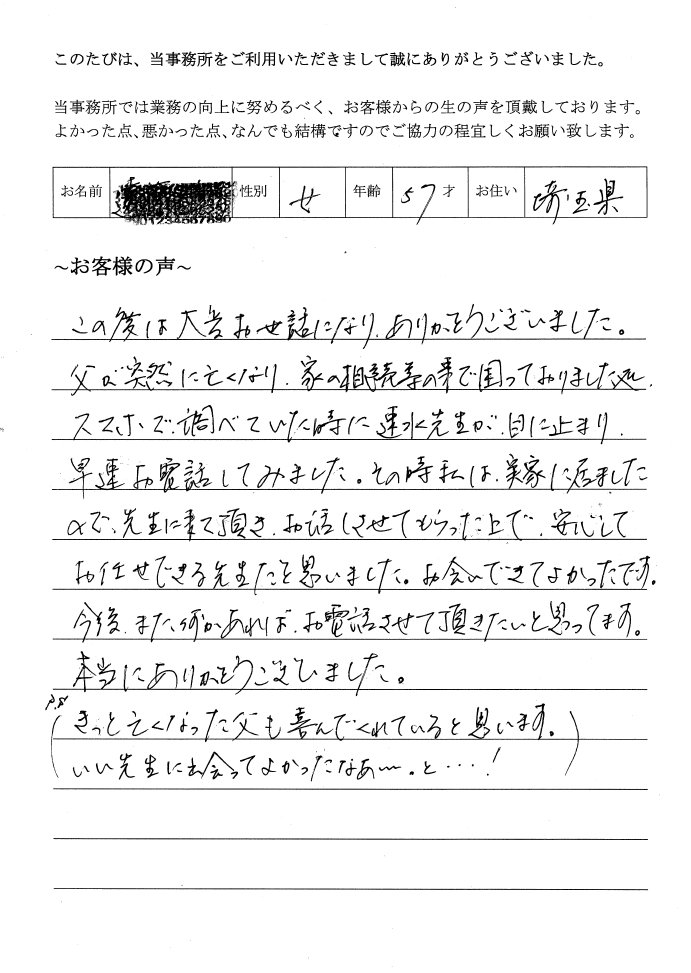 このたびは、当事務所をご利用いただきまして誠にありがとうございました。
当事務所では業務の向上に努めるべく、お客様からの生の声を頂戴しております。
よかった点、悪かった点、なんでも結構ですのでご協力の程宜しくお願い致します。
お名前 性別 女 年齢 57才 お住い 埼玉県
～お客様の声～
この度は大変お世話になり、ありがとうございました。
父が突然に亡くなり、家の相続等の事で困っておりました処、
スマホで調べていた時に速水先生が、目に止まり、
早速お電話してみました。その時私は、実家に居ました
ので、先生に来て頂き、お話しさせてもらった上で、安心して
お任せできる先生だと思いました。お会いできてよかったです。
今後、また、何かあれば、お電話させて頂きたいと思ってます。
本当にありがとうございました。
P.S
(きっと亡くなった父も喜んでくれていると思います。
いい先生に出会ってよかったなあ〜。と・・・!)